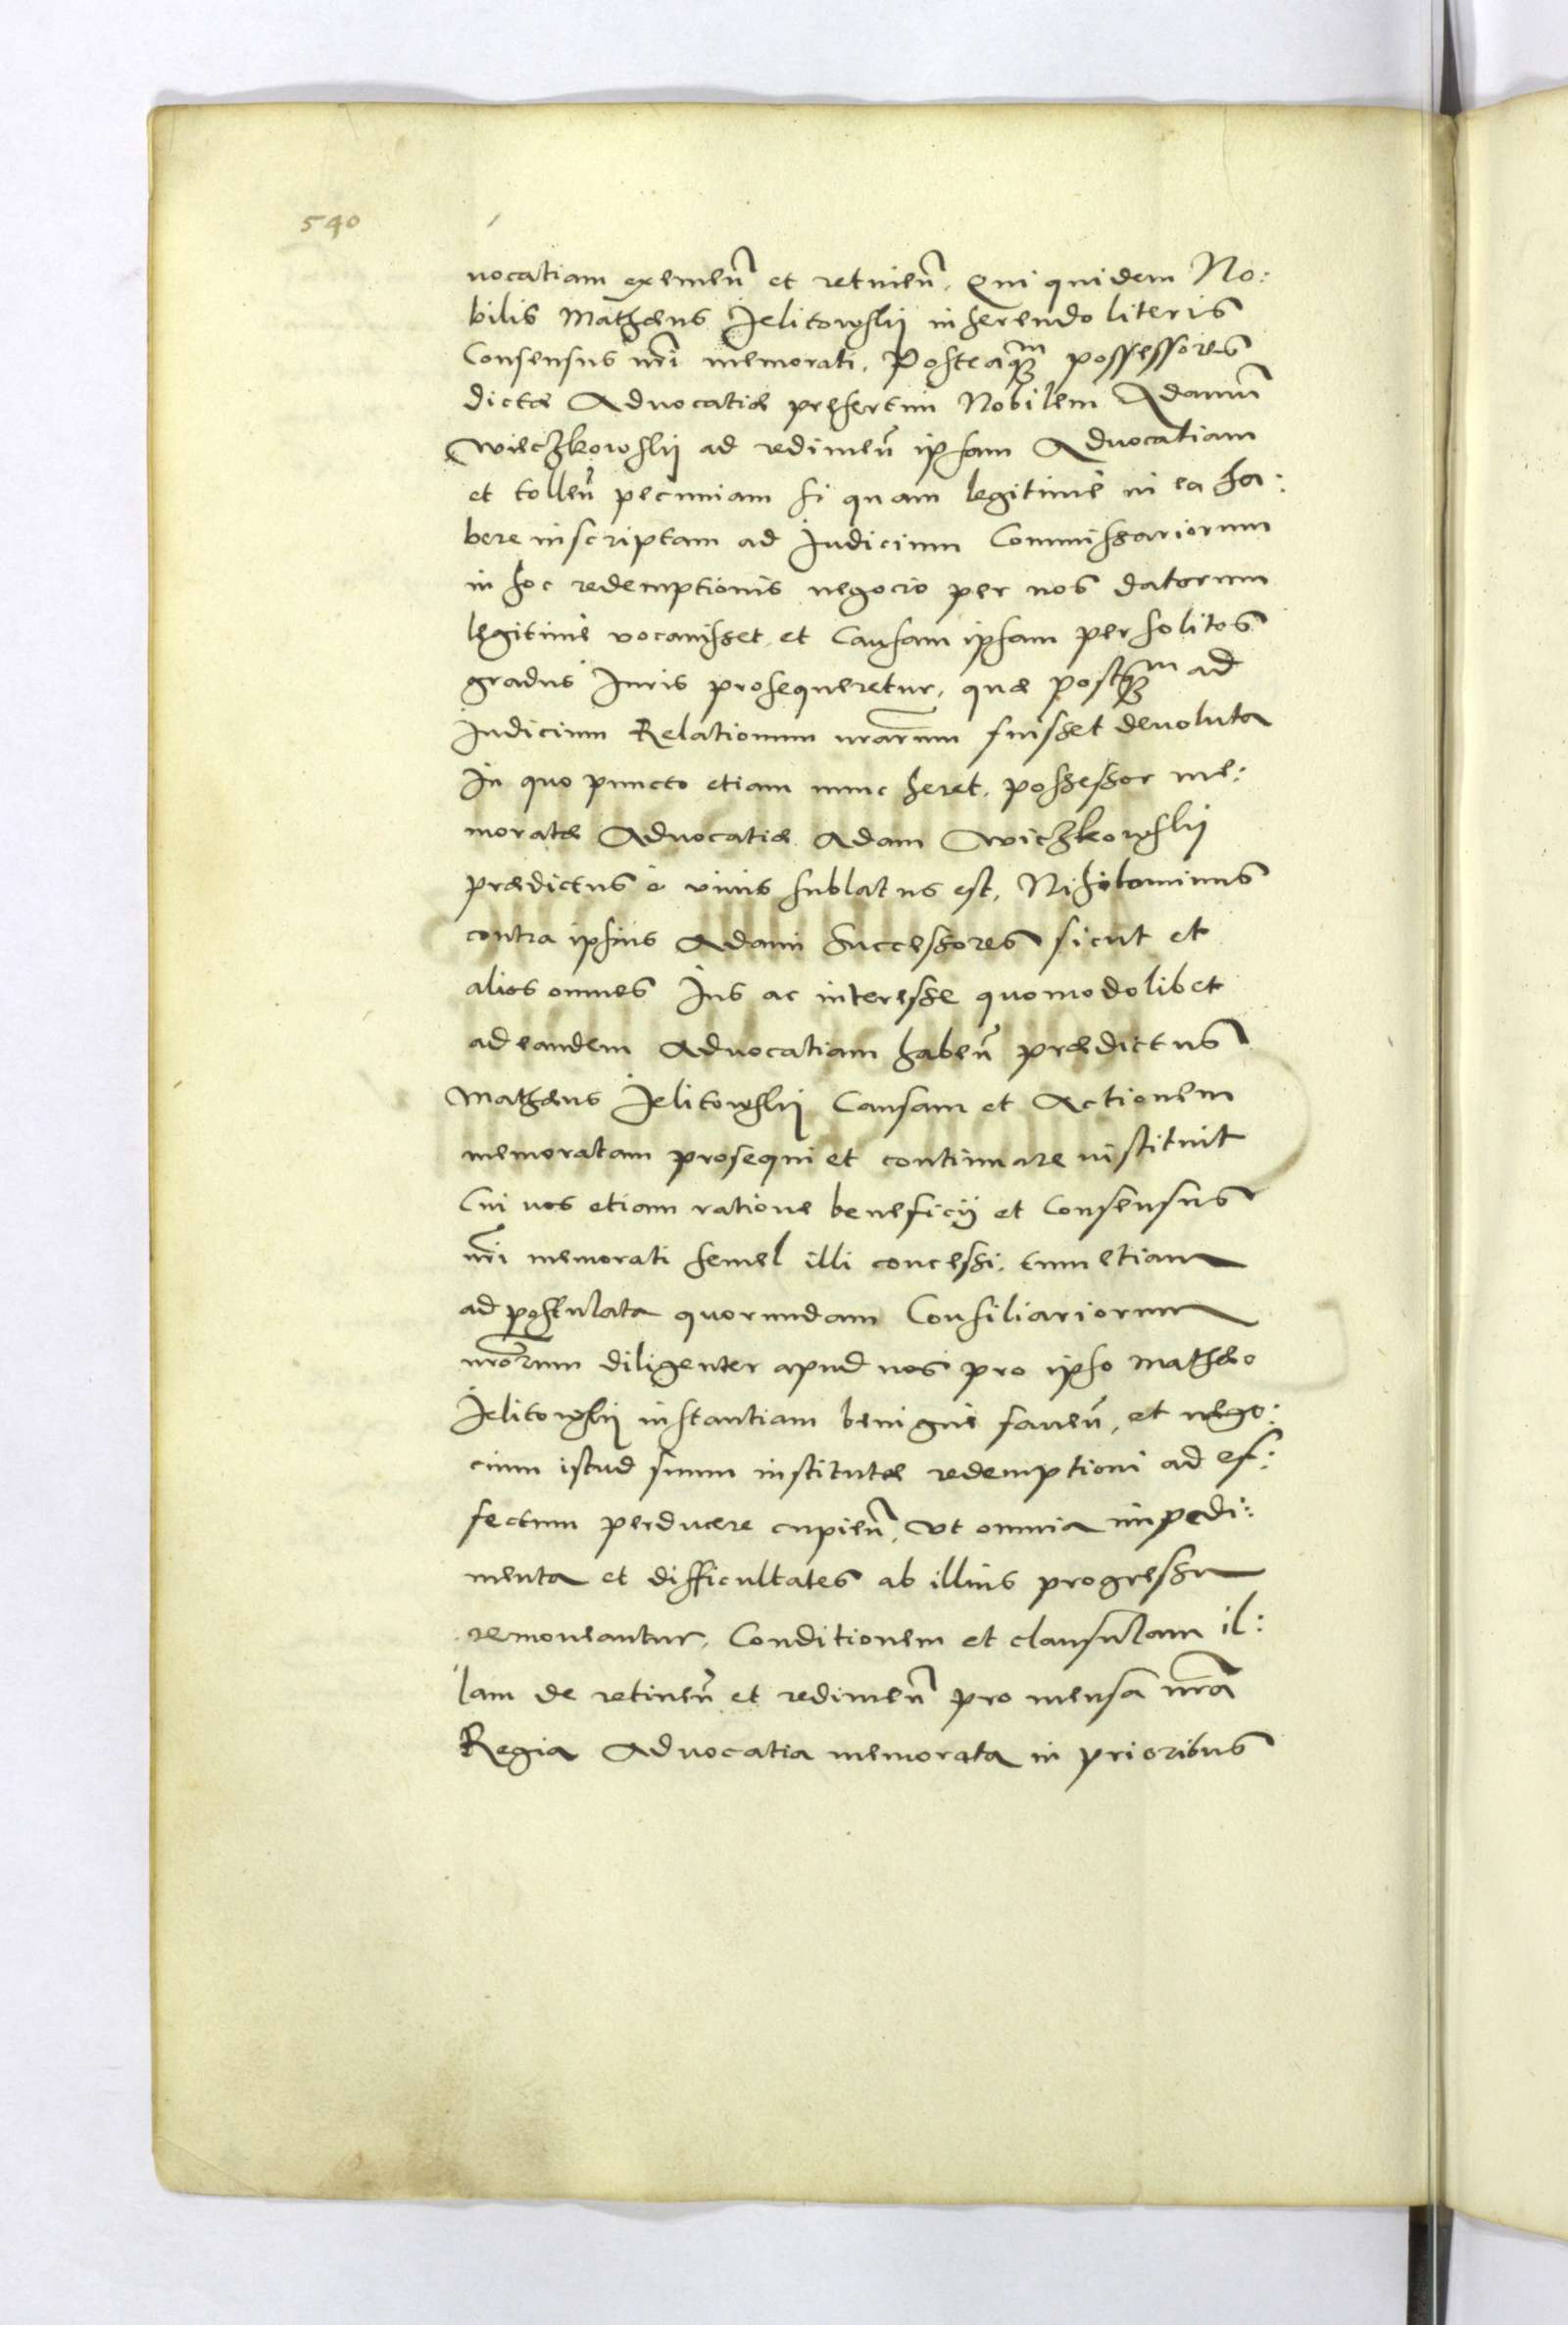 540
uocatiam exemeñ et retineñ. Qui quidem No:
bilis Mathæus Jelitowskij inherendo literis
Consensus nr̃i memorati. Posteaqȝm possessores
dictæ Aduocatiæ presertim Nobilem Adamũ
Wieczkowskij ad redimeñ ipsam Aduocatiam
et tolleñ pecuniam si quam legitimè in ea ha:
bere inscriptam ad Judicium Commissariorum
in hoc redemptionis negocio per nos datorum
legitimè vocauisset et Causam ipsam per solitos
gradus Juris prosequeretur, quæ postqȝm ad
Judicium Relationum nrarum fuisset deuoluta
In quo puncto etiam nunc heret. possessor me:
moratæ Aduocatiæ Adam Wiczkowskij
prædictus è viuis sublatus est, Nihilominus
contra ipsius Adami Successores sicut et
alios omnes Jus ac interesse quomodolibet
ad eandem Aduocatiam habeñ prædictus
Mathæus Jelitowskij Causam et Actionem
memoratam prosequi et continuare instituit
Cui nos etiam ratione beneficij et Consensus
nr̃i memorati semel illi concessi. tum etiam
ad postulata quorundam Consiliariorum
nrorum diligenter apud nos pro ipso Mathæo
Jelitowskij instantiam benignè faueñ, et nego:
cium istud suum institutæ redemptioni ad ef:
fectum perducere cupieñ, vt omnia impedi:
menta et difficultates ab illius progressu
remoueantur. Conditionem et clausulam il:
lam de retineñ et redimeñ pro mensa nrã
Regia Aduocatia memorata in prioribus